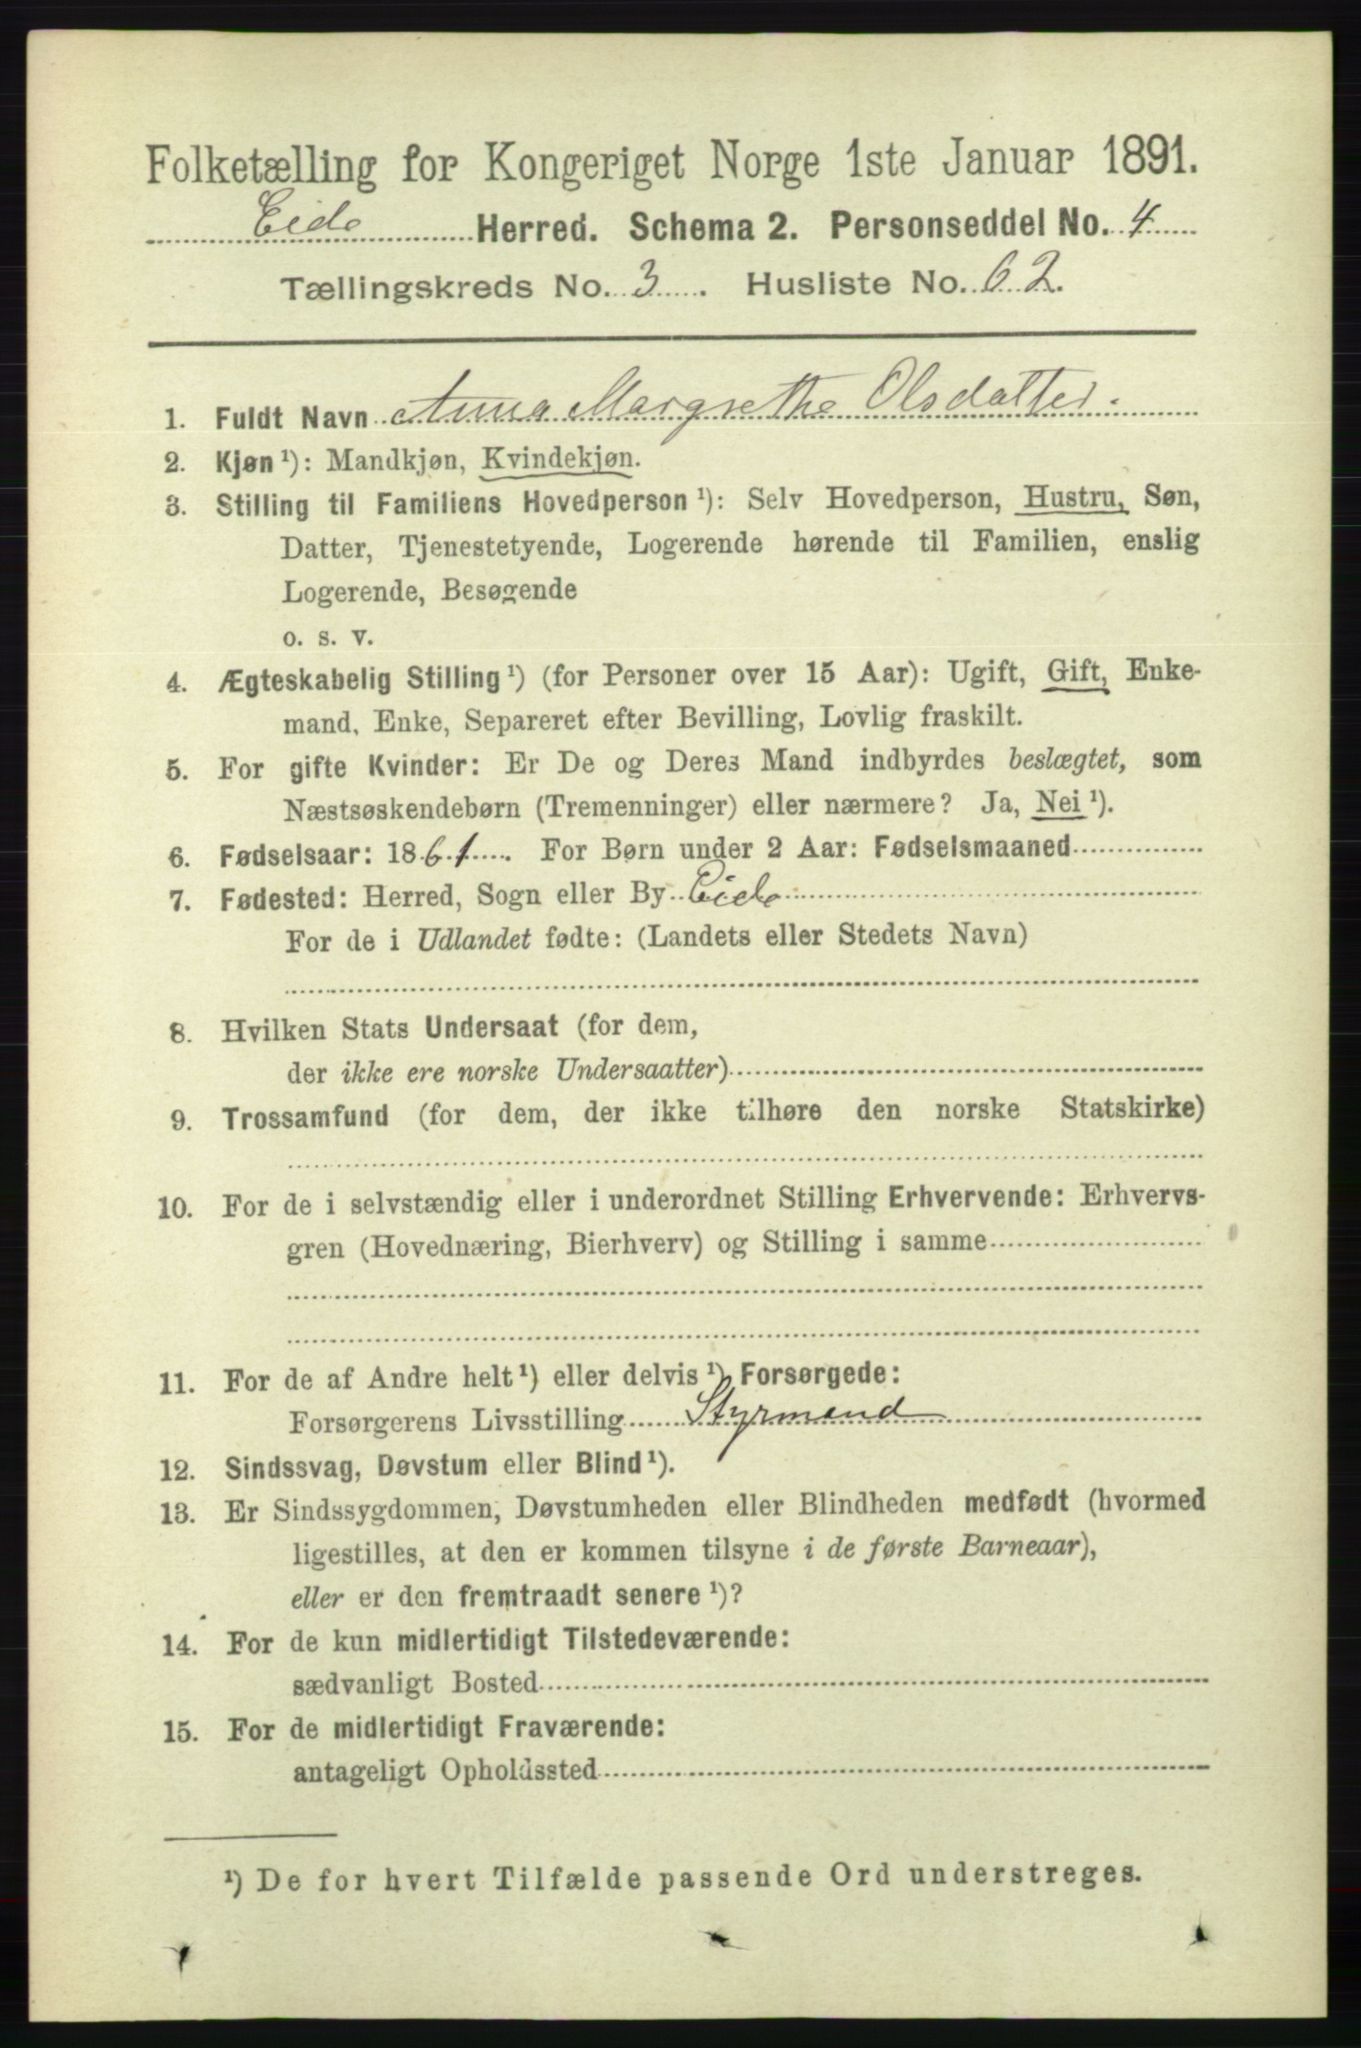 Folketælling for Kongeriget Norge 1ste Januar 1891.
Eide Herred. Schema 2. Personseddel No. 4
Tællingskreds No. 3. Husliste No. 62.
1. Fuldt Navn Anna Margrethe Olsdatter.
2. Kjøn ¹): Mandkjøn, Kvindekjøn.
3. Stilling til Familiens Hovedperson ¹): Selv Hovedperson, Hustru, Søn,
Datter, Tjenestetyende, Logerende hørende til Familien, enslig
Logerende, Besøgende
o. s. v.
4. Ægteskabelig Stilling ¹) (for Personer over 15 Aar): Ugift, Gift, Enke-
mand, Enke, Separeret efter Bevilling, Lovlig fraskilt.
5. For gifte Kvinder: Er De og Deres Mand indbyrdes beslægtet, som
Næstsøskendebørn (Tremenninger) eller nærmere? Ja, Nei ¹).
6. Fødselsaar: 1861. For Børn under 2 Aar: Fødselsmaaned
7. Fødested: Herred, Sogn eller By Eide
For de i Udlandet fødte: (Landets eller Stedets Navn)
8. Hvilken Stats Undersaat (for dem,
der ikke ere norske Undersaatter)
9. Trossamfund (for dem, der ikke tilhøre den norske Statskirke)
10. For de i selvstændig eller i underordnet Stilling Erhvervende: Erhvervs-
gren (Hovednæring, Bierhverv) og Stilling i samme
11. For de af Andre helt ¹) eller delvis ¹) Forsørgede:
Forsørgerens Livsstilling Styrmand
12. Sindssvag, Døvstum eller Blind ¹).
13. Er Sindssygdommen, Døvstumheden eller Blindheden medfødt (hvormed
ligestilles, at den er kommen tilsyne i de første Barneaar),
eller er den fremtraadt senere ¹)?
14. For de kun midlertidigt Tilstedeværende:
sædvanligt Bosted
15. For de midlertidigt Fraværende:
antageligt Opholdssted
¹) De for hvert Tilfælde passende Ord understreges.